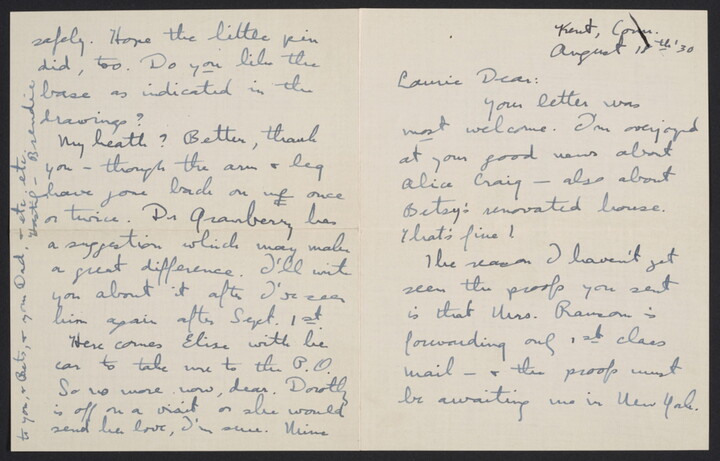 Kent, Conn.
August 11th '30
Laurie Dear:
Your letter was
most welcome. I'm overjoyed
at your good news about
Alice Craig — also about
Betsy's renovated house.
That's fine!
The reason I haven't yet
seen the proofs you sent
is that Mrs. Ransom is
forwarding only 1st class
mail — & the proofs must
be awaiting me in New York.
safely. Hope the little pin
did, too. Do you like the
base as indicated in the
drawings?
My heath? Better, thank
you — though the arm & leg
have gone back on me once
or twice. Dr Granberry has
a suggestion which may make
a great difference. I'll write
you about it after I've seen
him again after Sept. 1st.
Here comes Elise with her
car to take me to the P.O.
So no more now, dear. Dorothy
is off on a visit or she would
send her love, I'm sure. Mine
to you, & Bets, & your Dad, & etc etc.
Hastily — Brenda